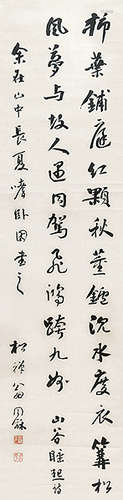 柿葉鋪庭紅顆秋薰鑪沈水度衣篝松
風夢与故人遇同駕飛鴻跨九州 山谷睡起詩
余在山中長夏嗜卧因書之
松禪翁同龢